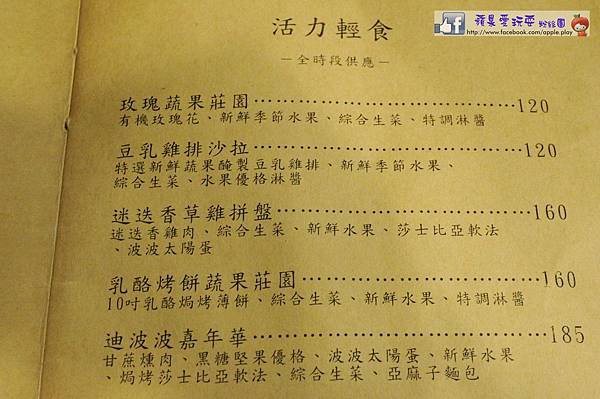 蘋果愛玩耍 粉絲團
http://www.facebook.com/apple.play
活力輕食
－全時段供應－
玫瑰蔬果莊園⋯⋯⋯⋯⋯⋯⋯⋯⋯⋯120
有機玫瑰花、新鮮季節水果、綜合生菜、特調淋醬
豆乳雞排沙拉⋯⋯⋯⋯⋯⋯⋯⋯⋯⋯120
特選新鮮蔬果醃製豆乳雞排、新鮮季節水果、
綜合生菜、水果優格淋醬
迷迭香草雞拼盤⋯⋯⋯⋯⋯⋯⋯⋯⋯160
迷迭香雞肉、綜合生菜、新鮮水果、莎士比亞軟法
、波波太陽蛋
乳酪烤餅蔬果莊園⋯⋯⋯⋯⋯⋯⋯⋯160
10吋乳酪焗烤薄餅、綜合生菜、新鮮水果、特調淋醬
迪波波嘉年華⋯⋯⋯⋯⋯⋯⋯⋯⋯⋯185
甘蔗燻肉、黑糖堅果優格、波波太陽蛋、新鮮水果
、焗烤莎士比亞軟法、綜合生菜、亞麻子麵包